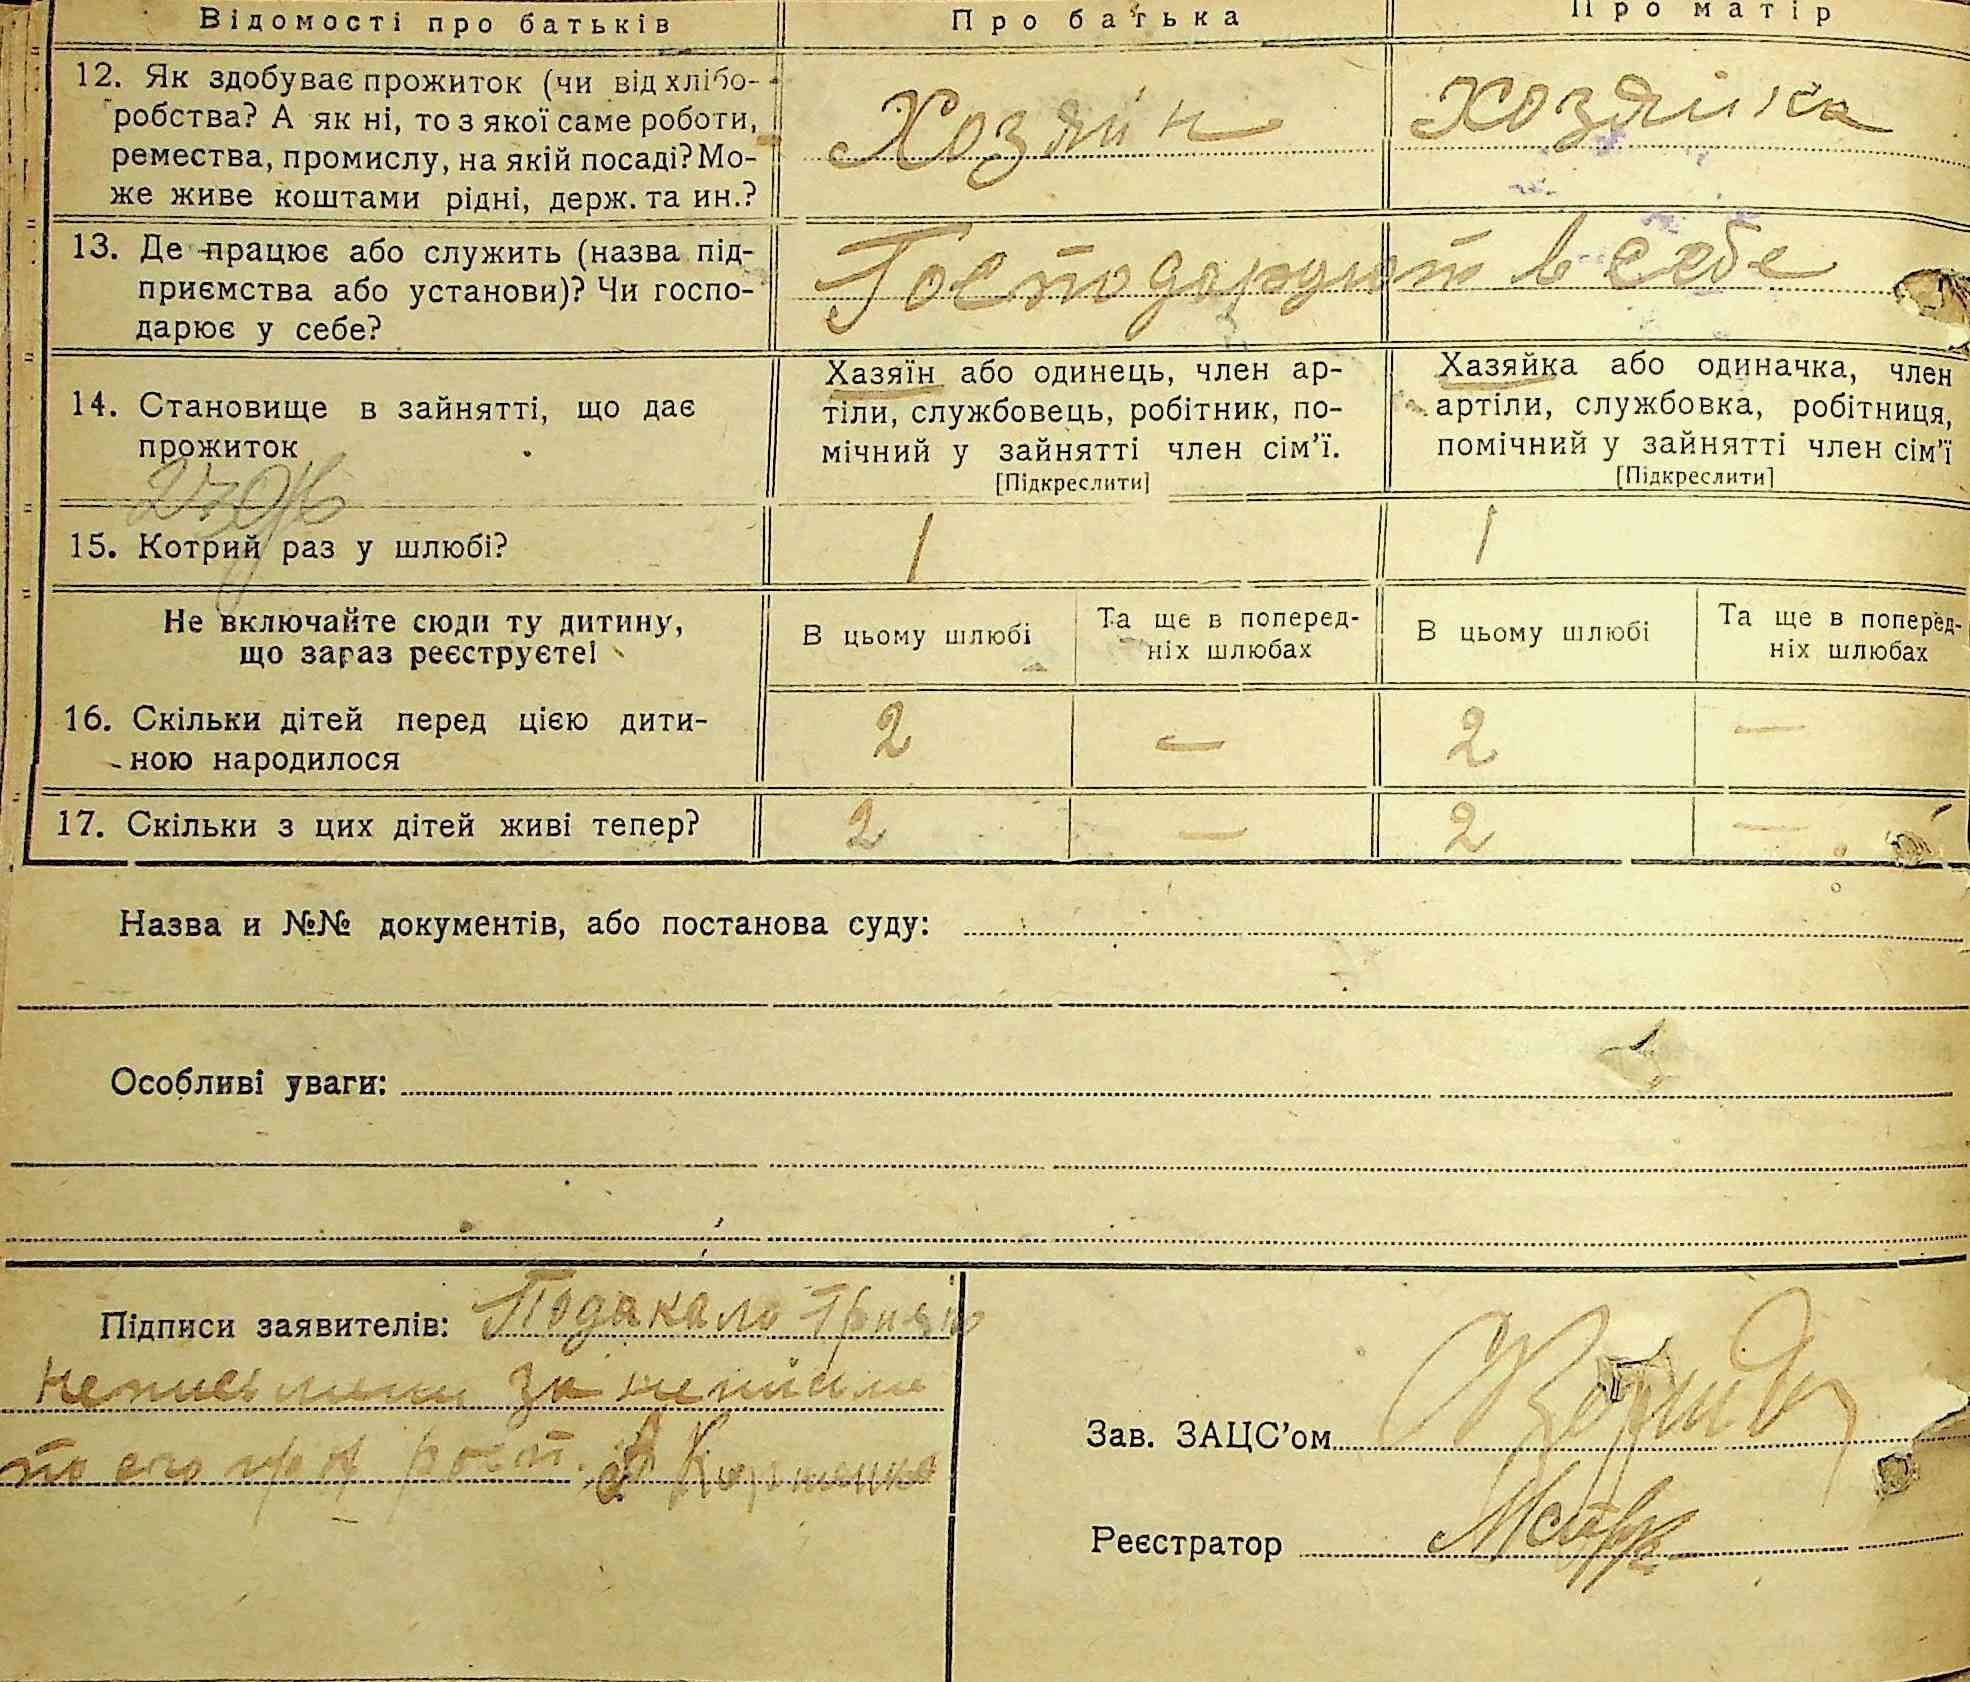 Відомості про батьків
Про батька
Про матір
12. Як здобуває прожиток (чи від хлібо-
робства? А як ні, то з якої саме роботи,
ремества, промислу, на якій посаді? Мо-
же живе коштами рідні, держ. та ин.?
Хозяйн
Хозяйка
13. Де працює або служить (назва під-
приємства або установи)? Чи госпо-
дарює у себе?
Господарюют в себе
14. Становище в зайнятті, що дає
прожиток
Хазяїн або одинець, член ар-
тіли, службовець, робітник, по-
мічний у зайнятті член сім'ї.
[Підкреслити]
Хазяйка або одиначка, член
артіли, службовка, робітниця,
помічний у зайнятті член сім'ї
[Підкреслити]
15. Котрий раз у шлюбі?
1
1
Не включайте сюди ту дитину,
що зараз реєструєте!
В цьому шлюбі
Та ще в поперед-
ніх шлюбах
В цьому шлюбі
Та ще в поперед-
ніх шлюбах
16. Скільки дітей перед цією дити-
ною народилося
2 — 2 —
17. Скільки з цих дітей живі тепер?
2 — 2 —
Назва и №№ документів, або постанова суду:
Особливі уваги:
Підписи заявителів:
за
его
Зав. ЗАЦС'ом
Реєстратор